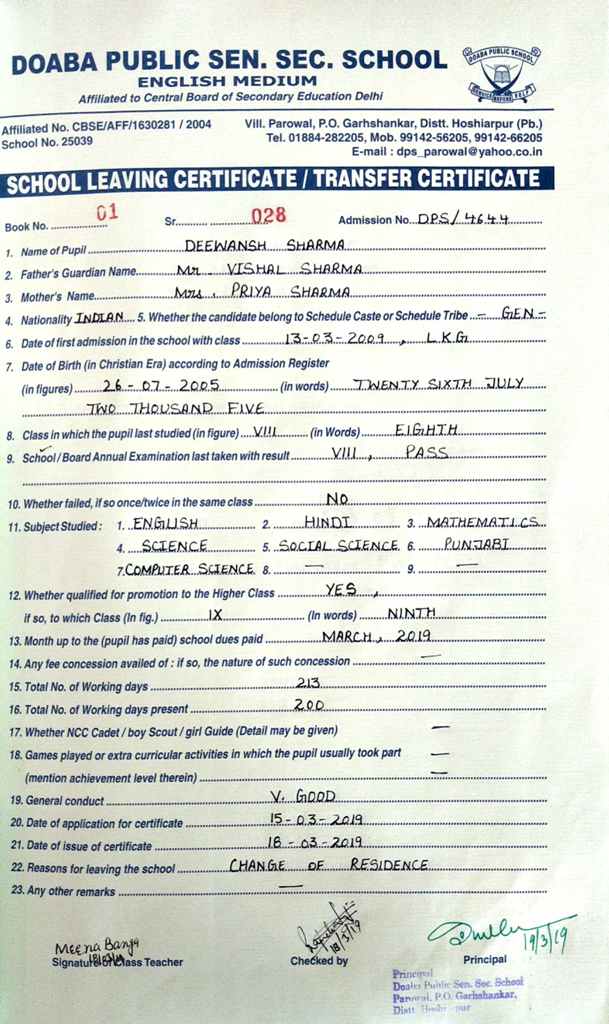 DOABA PUBLIC SEN. SEC. SCHOOL
DOABA PUBLIC SCHOOL
ENGLISH MEDIUM
Affiliated to Central Board of Secondary Education Delhi
Affiliated No. CBSE/AFF/1630281 / 2004
School No. 25039
Vill. Parowal, P.O. Garhshankar, Distt. Hoshiarpur (Pb.)
Tel. 01884-282205, Mob. 99142-56205, 99142-66205
E-mail : dps_parowal@yahoo.co.in
SCHOOL LEAVING CERTIFICATE / TRANSFER CERTIFICATE
Book No. 01 Sr. 028 Admission No. DPS/4644
1. Name of Pupil DEEWANSH SHARMA
2. Father's Guardian Name Mr. VISHAL SHARMA
3. Mother's Name Mrs. PRIYA SHARMA
4. Nationality INDIAN 5. Whether the candidate belong to Schedule Caste or Schedule Tribe - GEN -
6. Date of first admission in the school with class 13-03-2009, L.K.G
7. Date of Birth (in Christian Era) according to Admission Register
(in figures) 26-07-2005 (in words) TWENTY SIXTH JULY
TWO THOUSAND FIVE
8. Class in which the pupil last studied (in figure) VIII (in Words) EIGHTH
9. School / Board Annual Examination last taken with result VIII, PASS
10. Whether failed, if so once/twice in the same class NO
11. Subject Studied : 1. ENGLISH 2. HINDI 3. MATHEMATICS
4. SCIENCE 5. SOCIAL SCIENCE 6. PUNJABI
7. COMPUTER SCIENCE 8. — 9. —
12. Whether qualified for promotion to the Higher Class YES,
if so, to which Class (In fig.) IX (In words) NINTH
13. Month up to the (pupil has paid) school dues paid MARCH, 2019
14. Any fee concession availed of : if so, the nature of such concession —
15. Total No. of Working days 213
16. Total No. of Working days present 200
17. Whether NCC Cadet / boy Scout / girl Guide (Detail may be given) —
18. Games played or extra curricular activities in which the pupil usually took part —
(mention achievement level therein) —
19. General conduct V. GOOD
20. Date of application for certificate 15-03-2019
21. Date of issue of certificate 18-03-2019
22. Reasons for leaving the school CHANGE OF RESIDENCE
23. Any other remarks —
Meena
Signature of Class Teacher
18/3/19
Checked by
19/3/19
Principal
Principal
Doaba Public Sen. Sec. School
Parowal, P.O. Garhshankar,
Distt.